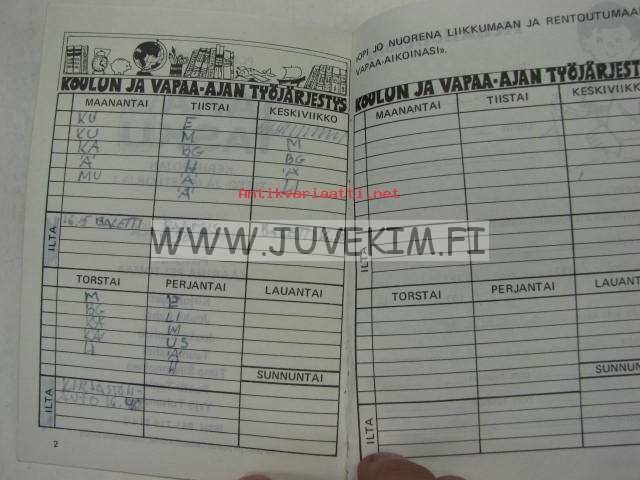 KOULUN JA VAPAA-AJAN TYÖJÄRJESTYS
MAANANTAI TIISTAI KESKIVIIKKO
KU E
KU M M
KA BG BG
Ä H Ä
MU Ä
Ä
ILTA BALETTI
TORSTAI PERJANTAI LAUANTAI
M E
BG LI
KÄ M
KÄ US
H Ä
H
SUNNUNTAI
ILTA
2
OPI JO NUORENA LIIKKUMAAN JA RENTOUTUMAA
VAPAA-AIKOINASI».
KOULUN JA VAPAA-AJAN TYÖJÄRJEST
MAANANTAI TIISTAI KESKIVIIK
ILTA
TORSTAI PERJANTAI LAUANTA
SUNNUNT
ILTA
Antikvariaatti.net
WWW.JUVEKIM.FI